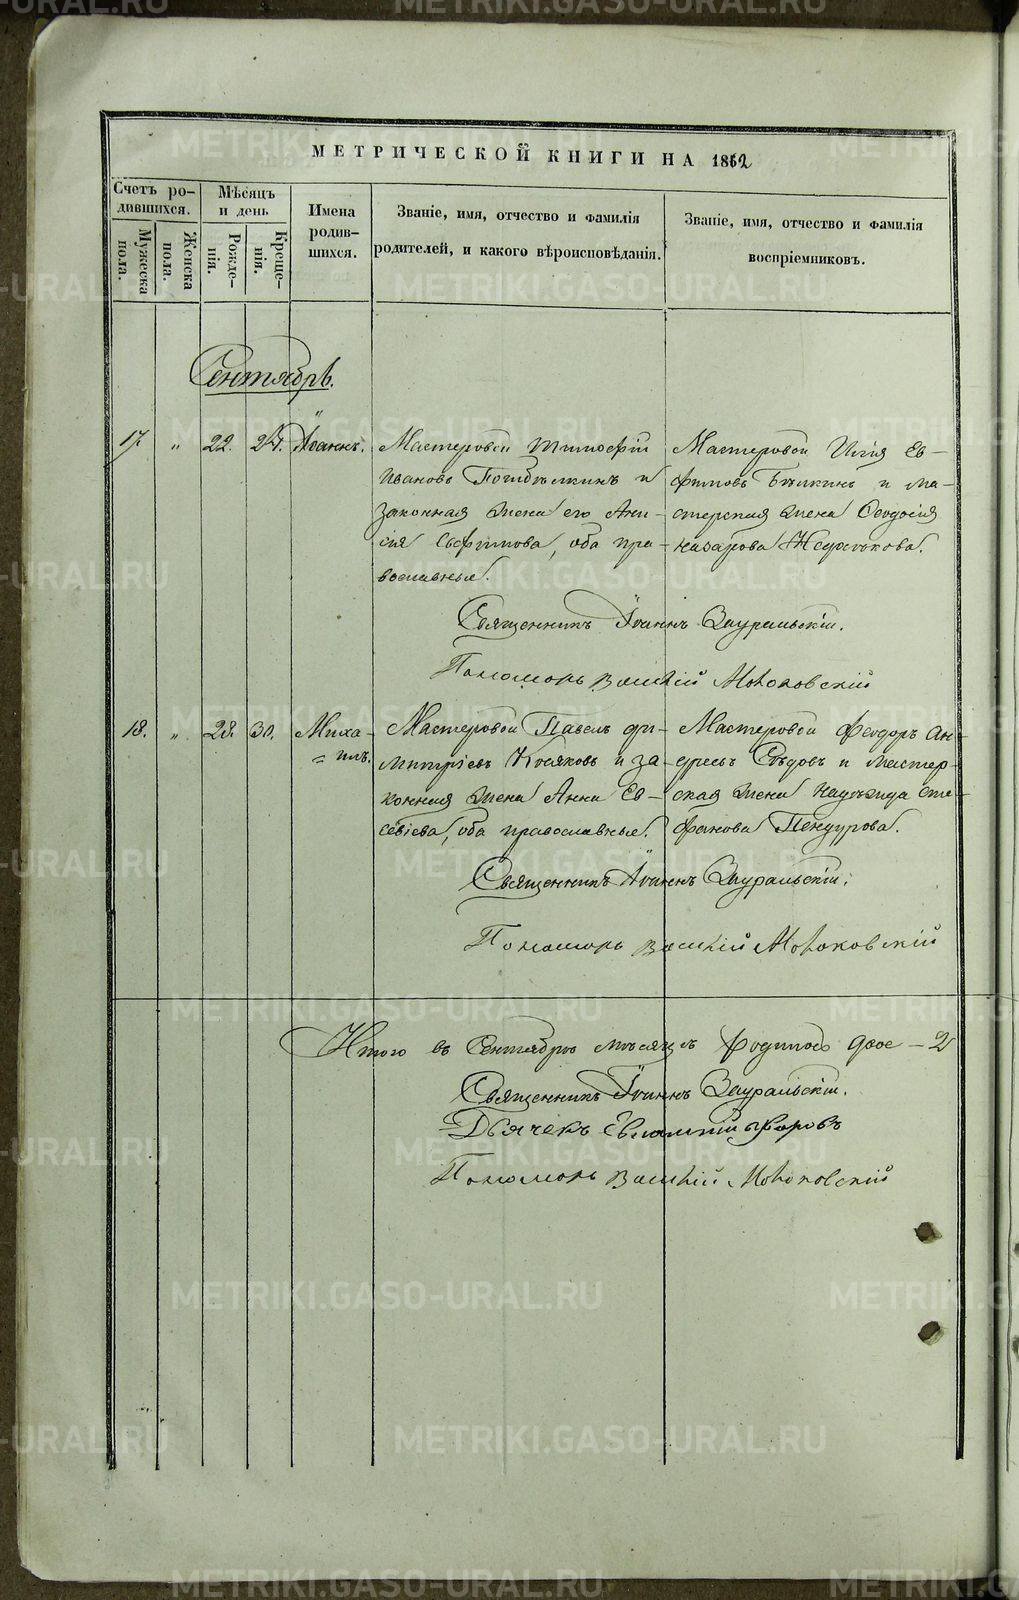 МЕТРИЧЕСКОЙ КНИГИ НА 1862
Счетъ ро-
дившихся.
Мужеска
пола.
Женска
пола.
Мѣсяцъ
и день
Рожде-
нія.
Креще-
нія.
Имена
родив-
шихся.
Званіе, имя, отчество и фамилія
родителей, и какого вѣроисповѣданія.
Званіе, имя, отчество и фамилія
воспріемниковъ.
Сентябрь.
17. „ 22. 24. Іоаннъ.
Мастеровой Тимофей
Ивановъ и
законная жена его Ани-
сія Евфимова, оба пра-
вославные.
Мастеровой Илія Ев-
фимовъ Бѣлкинъ и ма-
стерская жена Ѳеодосія
Назарова
Священникъ Іоаннъ Зауральскій.
Пономорь Василій
18. „ 28. 30. Миха-
илъ.
Мастеровой Павелъ Ди-
митріевъ Косяковъ и за-
конная жена Анна Ев-
севіева, оба православные.
Мастеровой Феодоръ Ан-
дреевъ Сѣдовъ и мастер-
ская жена Надежда Сте-
фанова Пендурова.
Священникъ Іоаннъ Зауральскій.
Пономорь Василій
Итого въ Сентябрѣ мѣсяцѣ родилось двое – 2
Священникъ Іоаннъ Зауральскій.
Дьячекъ Евлампій
Пономорь Василій
METRIKI.GASO-URAL.RU